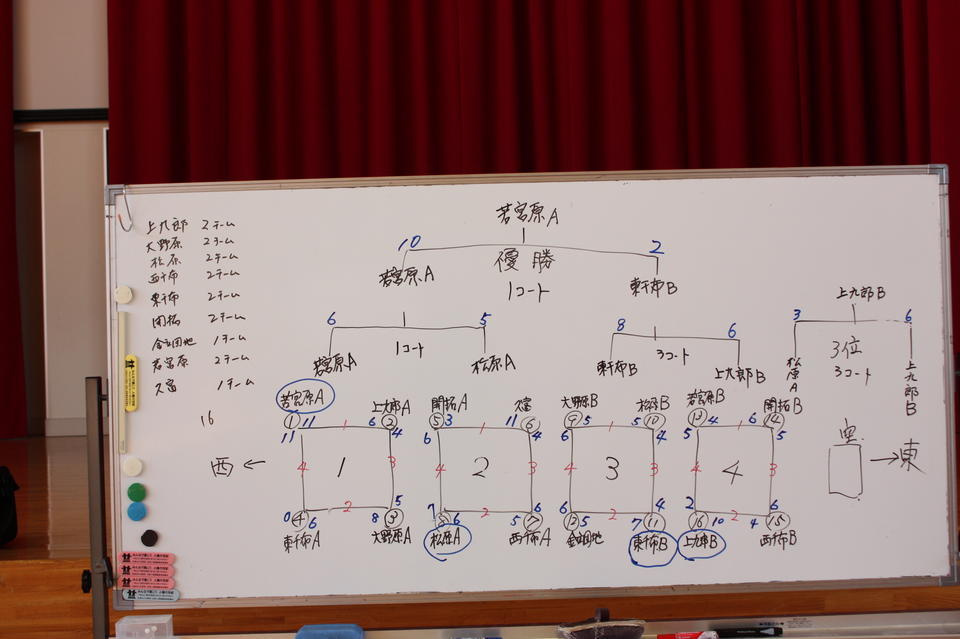 上九郎 2チーム
大野原 2チーム
松原 2チーム
西千布 2チーム
東千布 2チーム
開拓 2チーム
金立団地 1チーム
若宮原 2チーム
久富 1チーム
16
若宮原A
10 優勝 2
若宮原A 1コート 東千布B
6 5
若宮原A 1コート 松原A
8 6
東千布B 3コート 上九郎B
上九郎B
3 6
松原A 3位 3コート 上九郎B
西 ←
若宮原A 上九郎A
① 11 1 6 ②
11 4
4 1 3
0 5
④ 6 2 8 ③
東千布A 大野原A
開拓A 久富
⑤ 3 1 11 ⑥
6 4
4 2 3
7 6
⑧ 6 2 5 ⑦
松原A 西千布A
大野原B 松原B
⑨ 5 1 5 ⑩
6 4
4 3 3
6 4
⑫ 5 2 7 ⑪
金立団地 東千布B
若宮原B 開拓B
⑬ 4 1 6 ⑭
5 5
4 4 3
2 6
⑯ 10 2 4 ⑮
上九郎B 西千布B
→ 東